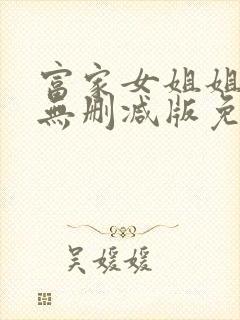 富家女姐姐
無删减版免
吴媛媛